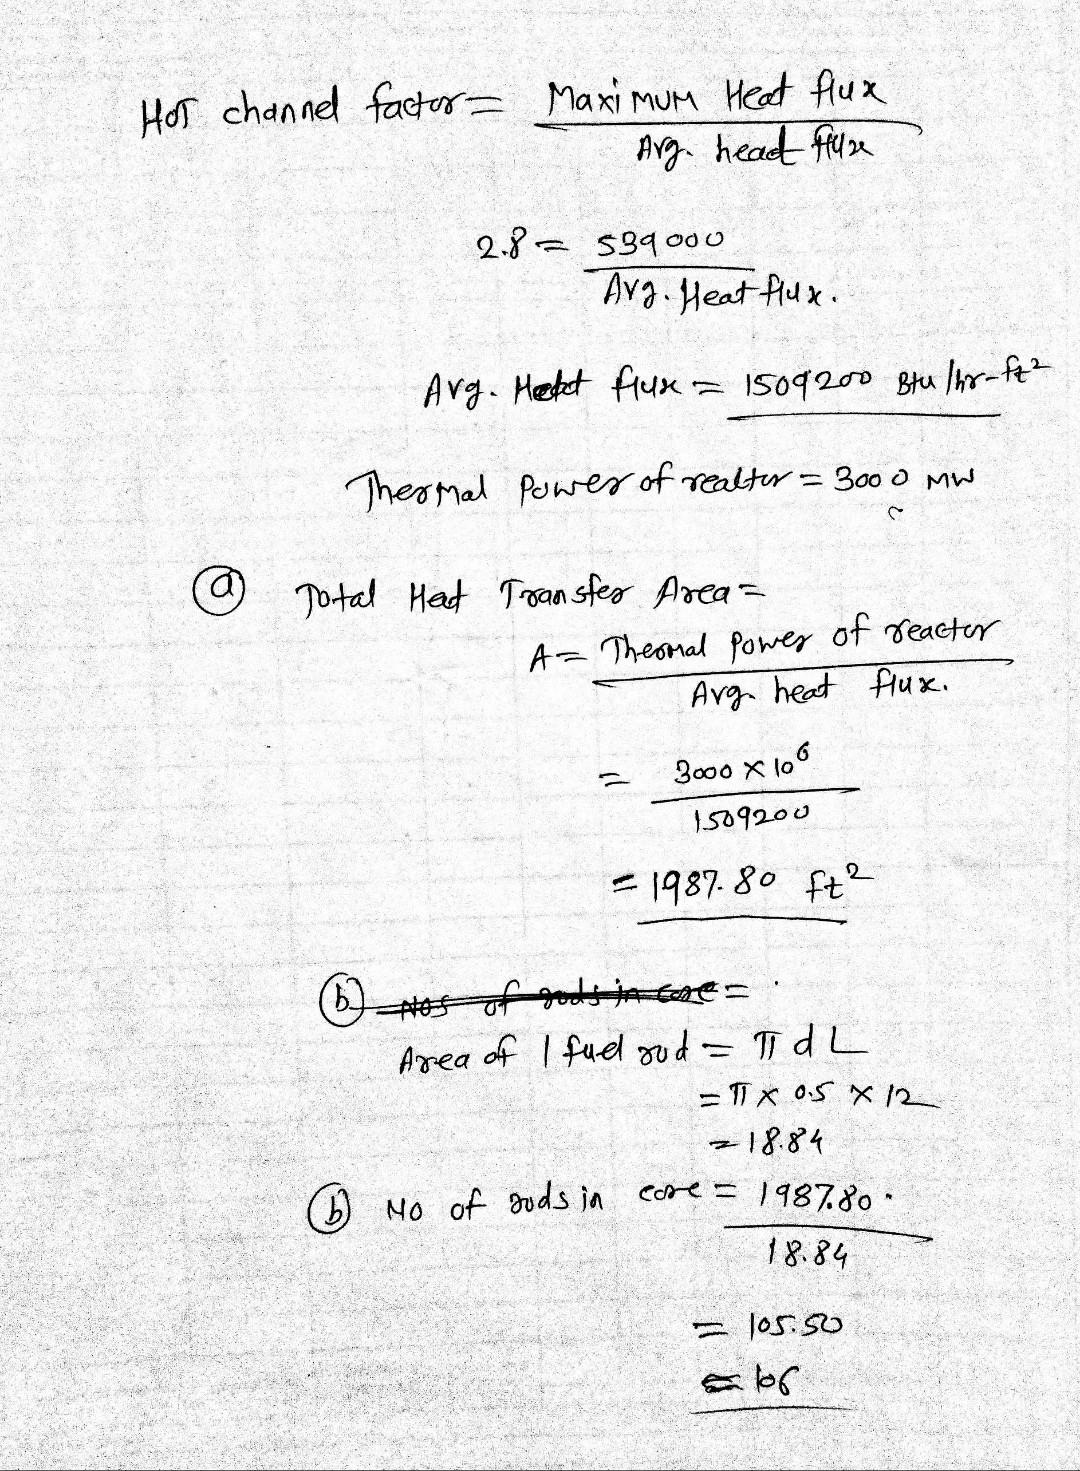 HOT channel factor = Maximum Heat flux
Avg. head flux
2.8 = 539000
Avg. Heat flux.
Avg. Heat flux = 1509200 Btu/hr-ft²
Thermal Power of realtor = 3000 MW
(a) Total Heat Transfer Area =
A = Thermal Power of reactor
Avg. heat flux.
= 3000 × 10⁶
1509200
= 1987.80 ft²
(b) Nos of rods in core =
Area of 1 fuel rod = π d L
= π × 0.5 × 12
= 18.84
(b) No of rods in core = 1987.80
18.84
= 105.50
= 106